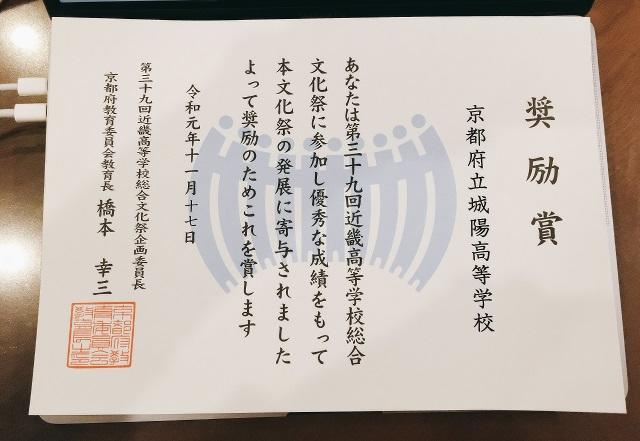 奨励賞
京都府立城陽高等学校
あなたは第三十九回近畿高等学校総合
文化祭に参加し優秀な成績をもって
本文化祭の発展に寄与されました
よって奨励のためこれを賞します
令和元年十一月十七日
第三十九回近畿高等学校総合文化祭企画委員長
京都府教育委員会教育長 橋本 幸三